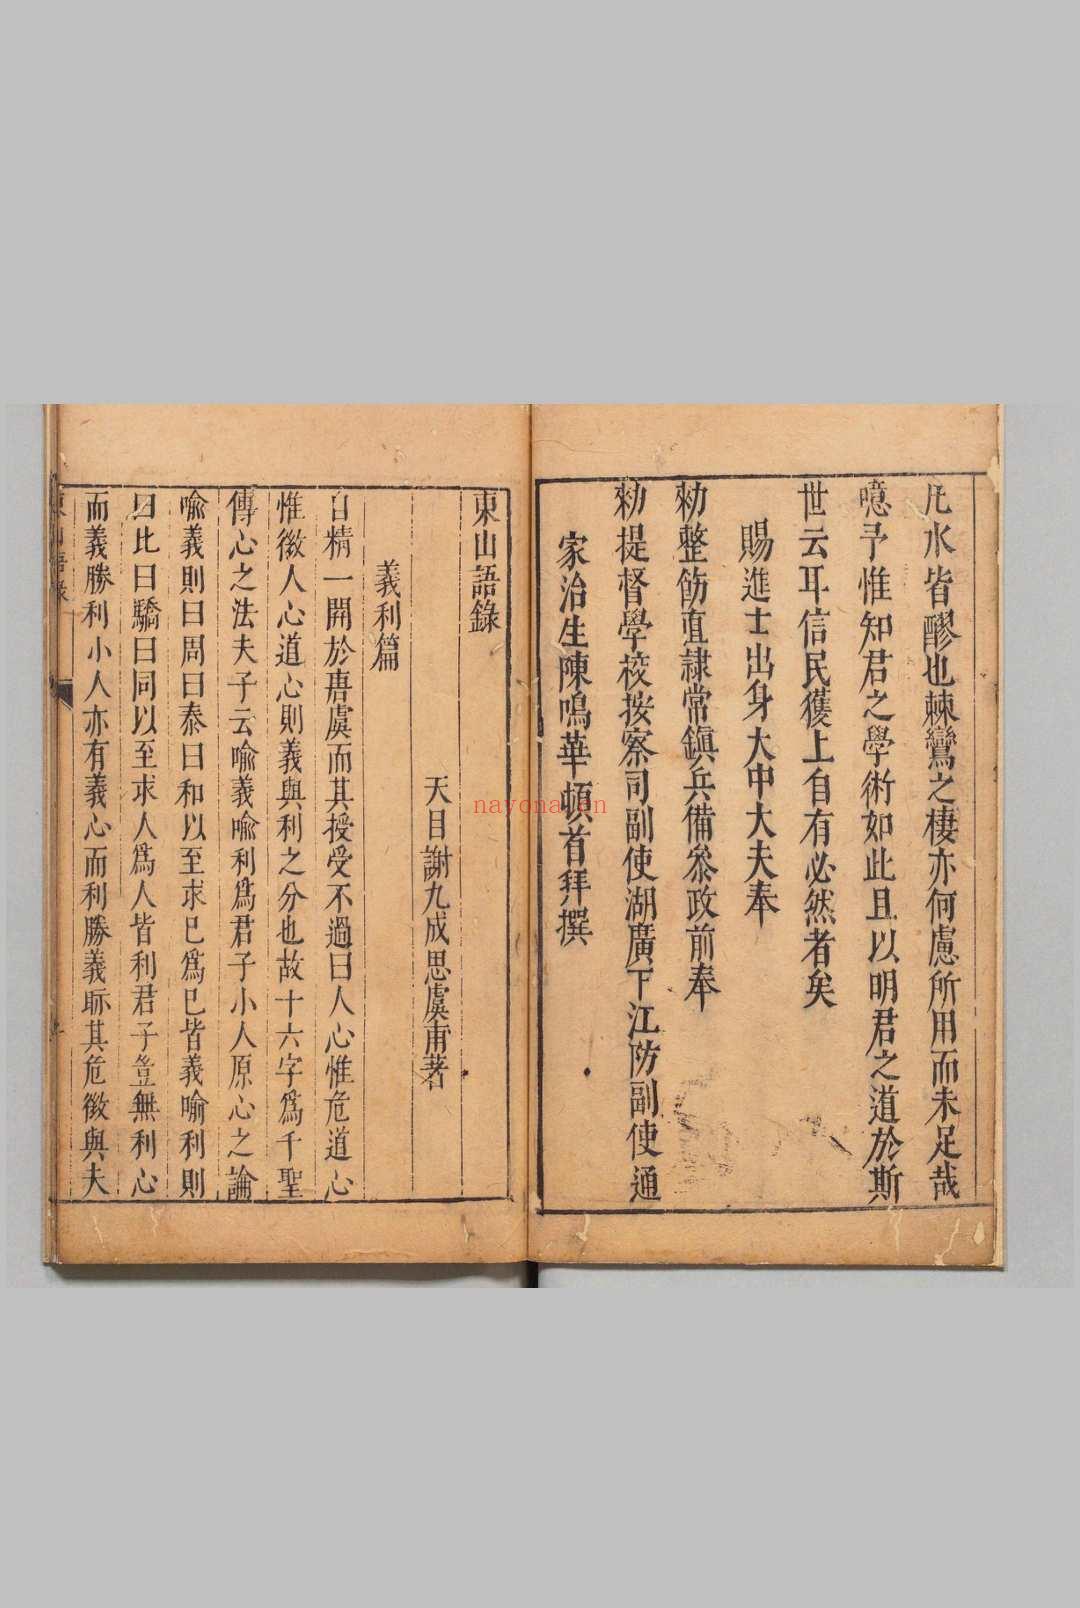 凡水皆醪也棘鸞之棲亦何慮所用而未足哉
噫予惟知君之學術如此且以明君之道於斯
世云耳信民獲上自有必然者矣
賜進士出身大中大夫奉
勑整飭直隷常鎮兵備叅政前奉
勑提督學校按察司副使湖廣下江防副使通
家治生陳鳴華頓首拜撰
東山語錄
天目謝九成思虞甫著
義利篇
自精一開於唐虞而其授受不過曰人心惟危道心
惟微人心道心則義與利之分也故十六字爲千聖
傳心之法夫子云喻義喻利爲君子小人原心之論
喻義則曰周曰泰曰和以至求已爲已皆義喻利則
曰比曰驕曰同以至求人爲人皆利君子豈無利心
而義勝利小人亦有義心而利勝義眎其危微與夫
東山語錄
nayona.cn